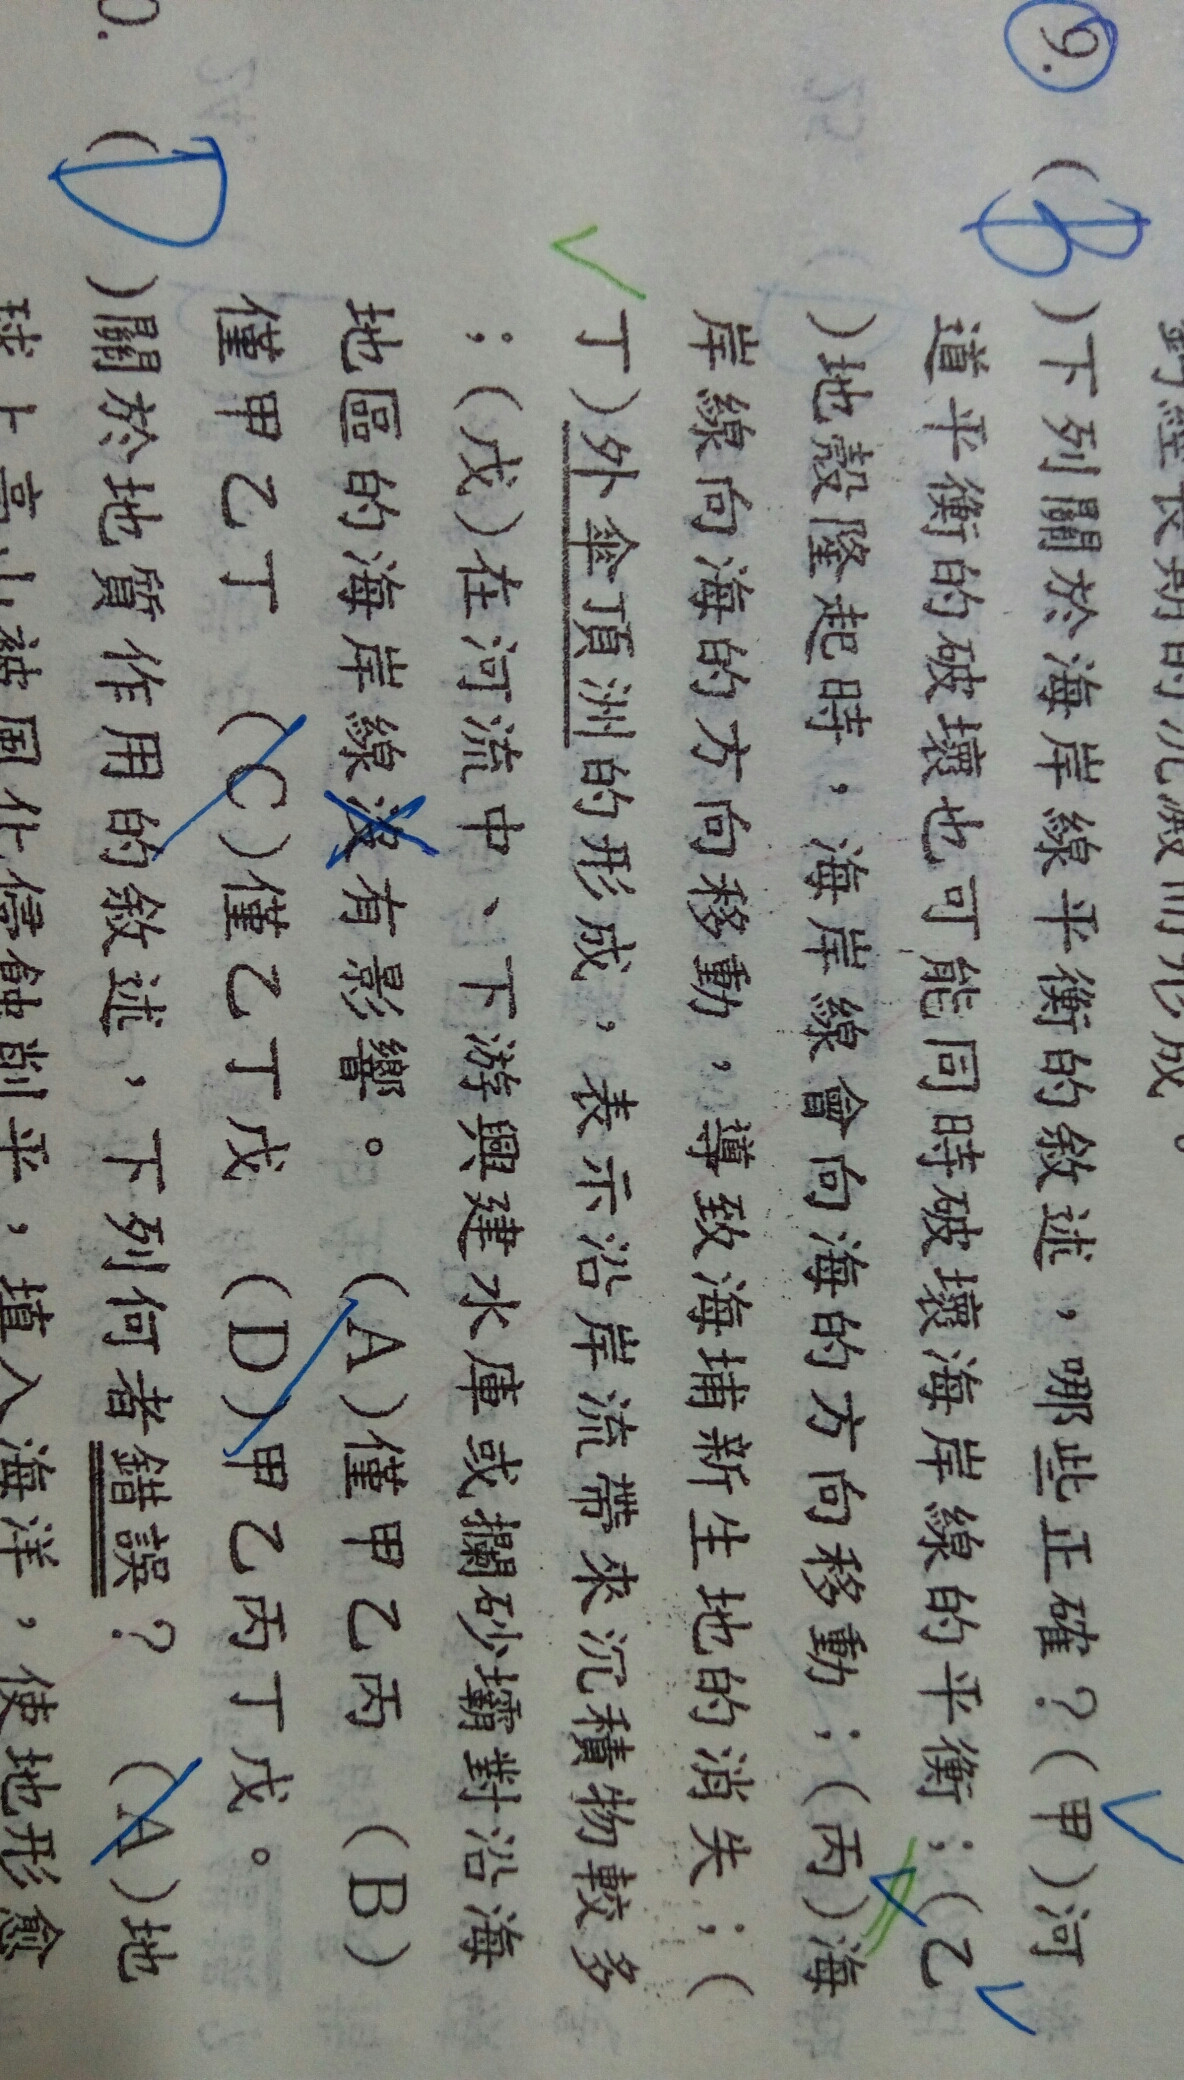 9. (B)下列關於海岸線平衡的敘述，哪些正確？(甲)河
道平衡的破壞也可能同時破壞海岸線的平衡；(乙
)地殼隆起時，海岸線會向海的方向移動；(丙)海
岸線向海的方向移動，導致海埔新生地的消失；(
丁)外傘頂洲的形成，表示沿岸流帶來沉積物較多
；(戊)在河流中、下游興建水庫或攔砂壩對沿海
地區的海岸線沒有影響。 (A)僅甲乙丙 (B)
僅甲乙丁 (C)僅乙丁戊 (D)甲乙丙丁戊。
0. (D)關於地質作用的敘述，下列何者錯誤？ (A)地
球上高山被風化侵蝕削平，填入海洋，使地形愈